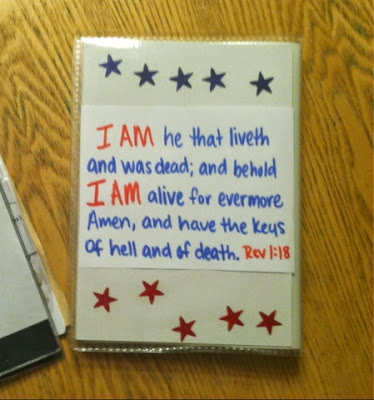 I AM he that liveth
and was dead; and behold
I AM alive for evermore
Amen, and have the keys
of hell and of death. Rev 1:18